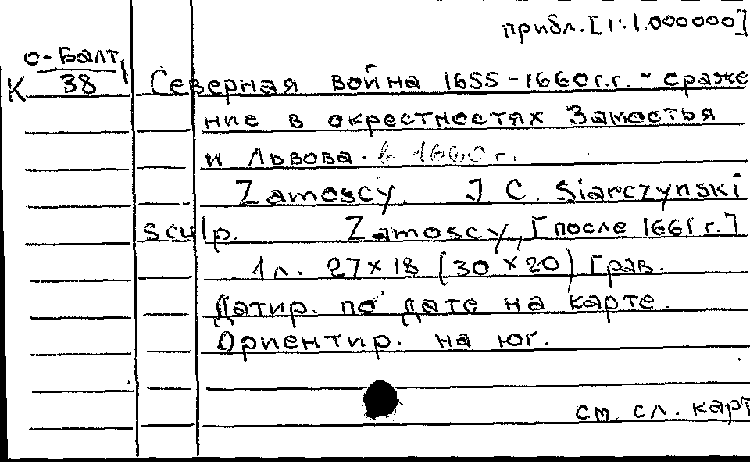 прибл. [1:1.000000]
с-Балт,
К 38
Северная война 1655-1660г.г. - сраже
ние в окрестностях Замостья
и Львова. в 1660 г.
Zamoscy. J C. Siarczynski
sculp. Zamoscy, [после 1661 г.]
1 л. 27×18 (30×20) Грав.
Датир. по дате на карте.
Ориентир. на юг.
см. сл. карт